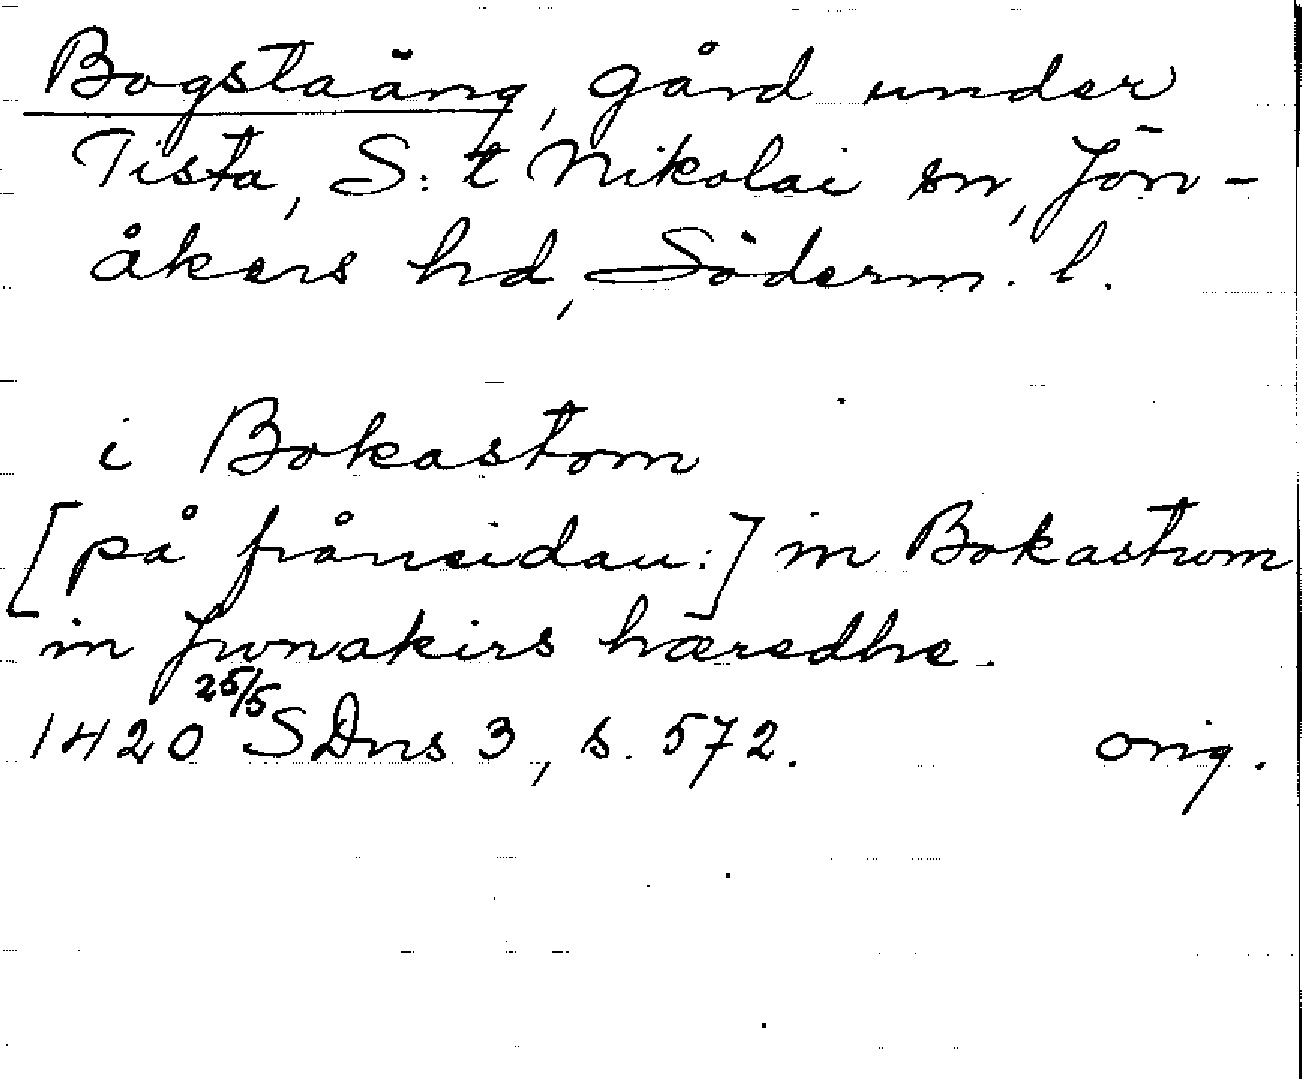 Bogstaäng, gård under
Tista, S:t Nikolai sn, Jön-
åkers hd, Söderm. l.
i Bokastom
[på frånsidan:] in Bokastwm
in Jwnakirs hæredhe.
1420 25/5 SDns 3, s. 572. orig.